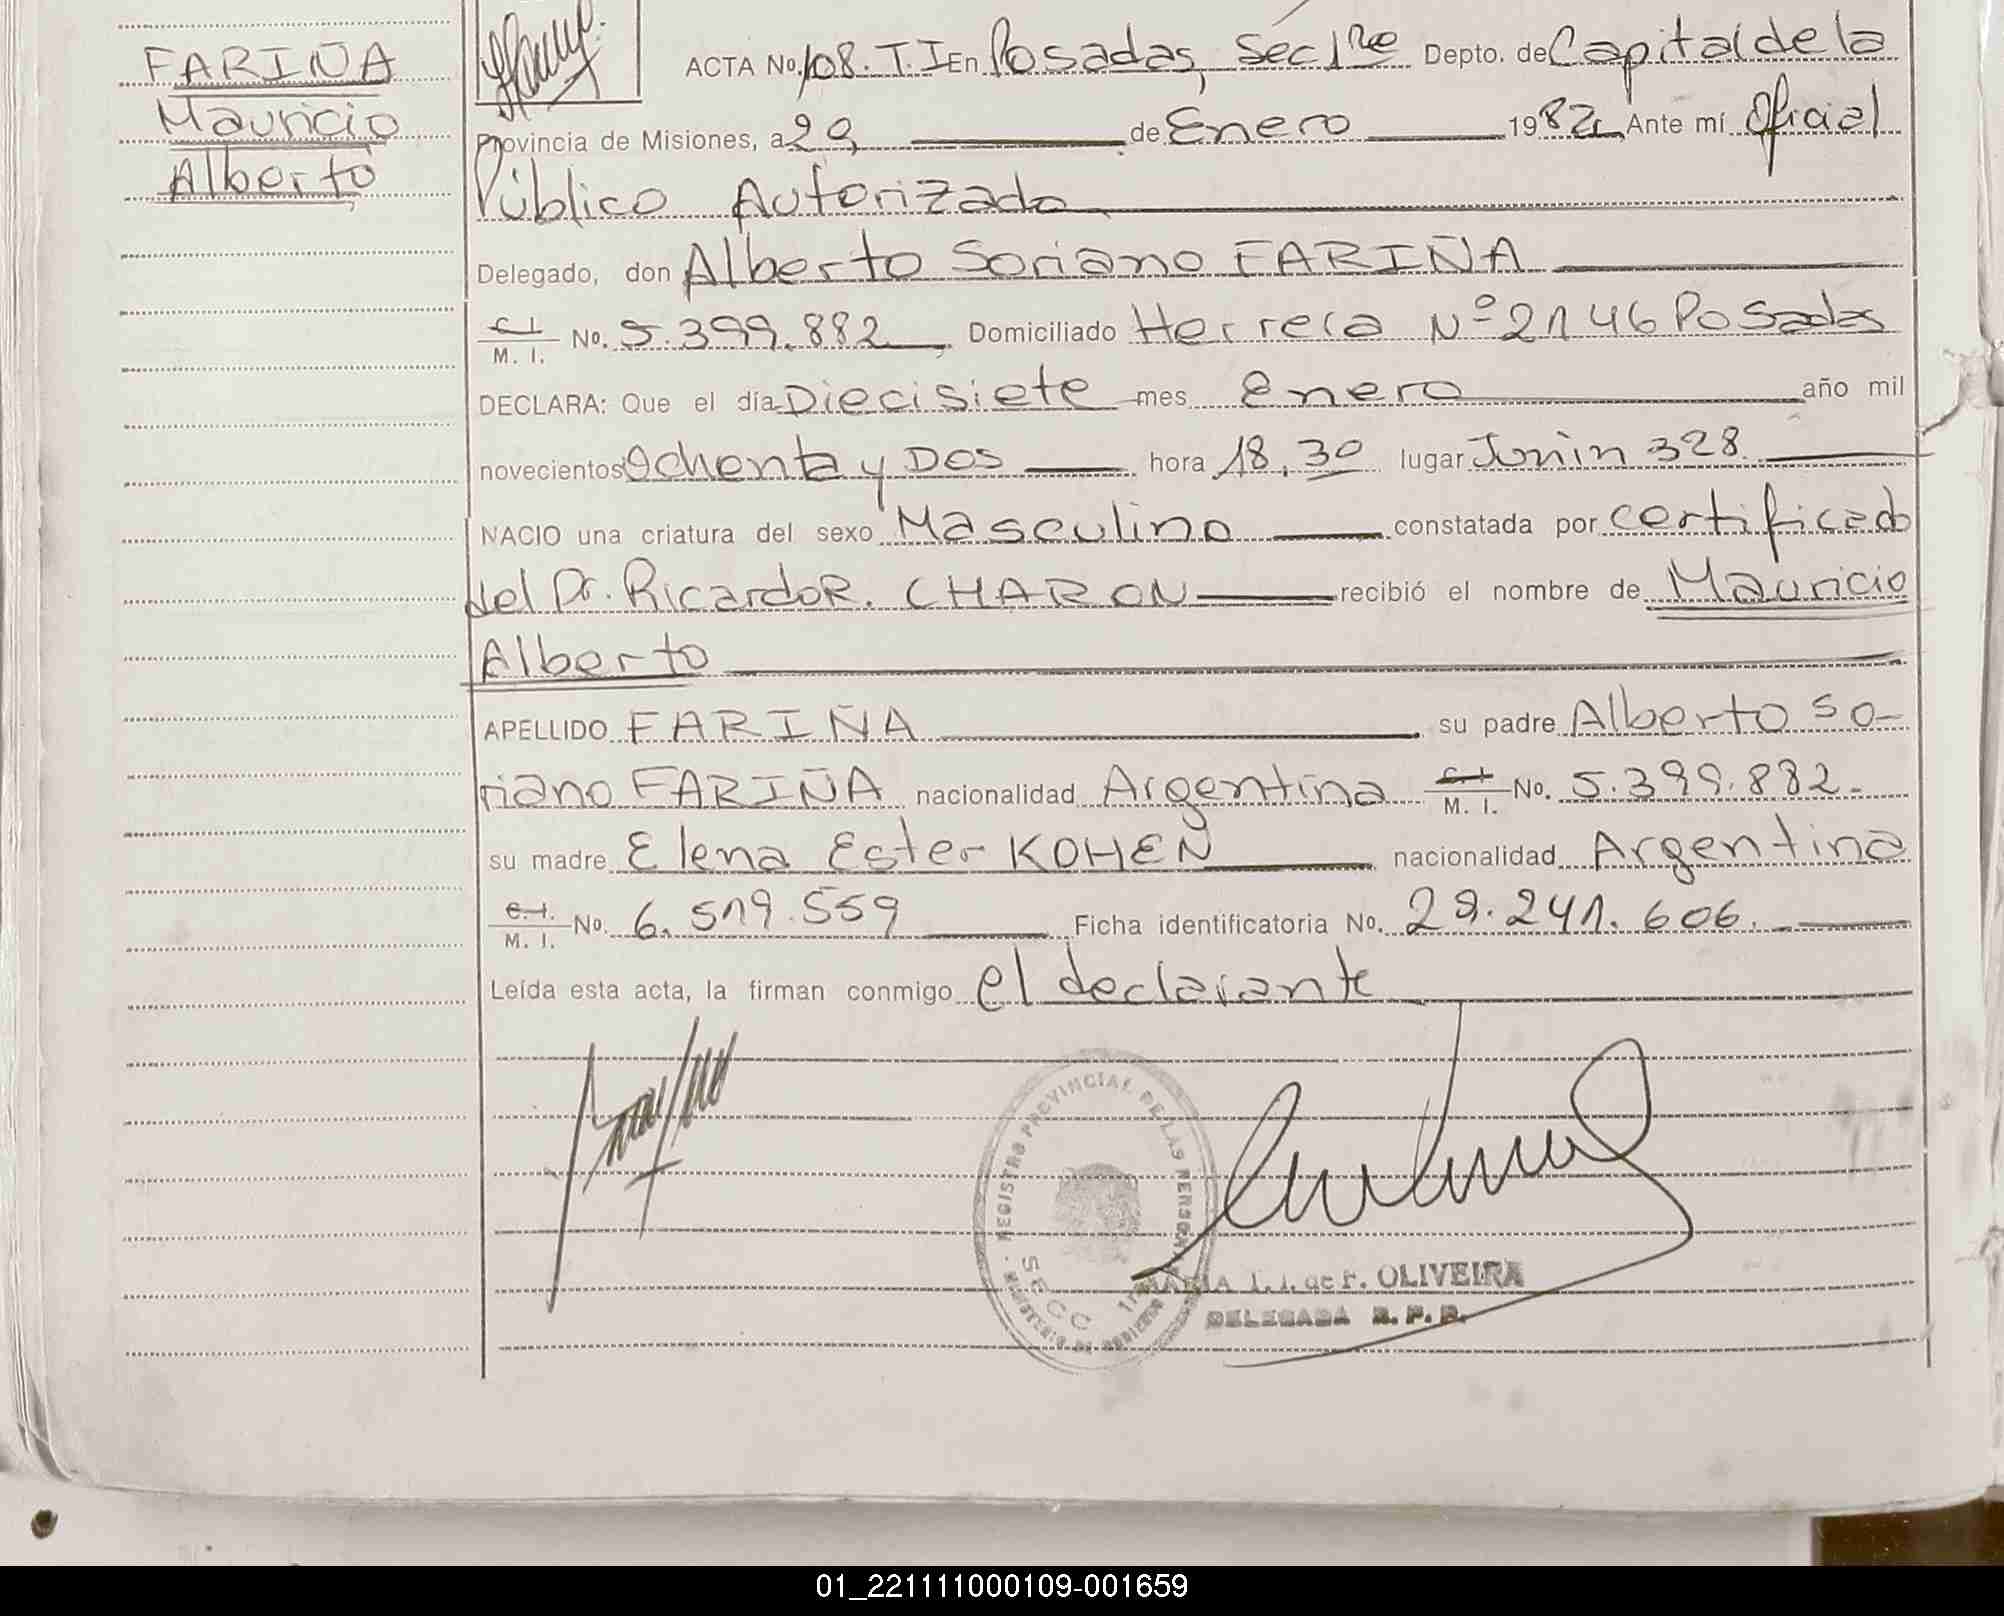 FARIÑA
Mauricio
Alberto
ACTA No. 108. T. I En Posadas, Sec 1ra Depto. de Capital de la
Provincia de Misiones, a 29 de Enero 1982, Ante mí Oficial
Público Autorizado
Delegado, don Alberto Soriano FARIÑA
C. I. M. I. No. 5.399.882, Domiciliado Herrera Nº 2146 Posadas
DECLARA: Que el día Diecisiete mes Enero año mil
novecientos Ochenta y Dos hora 18,30 lugar Junin 328
NACIO una criatura del sexo Masculino constatada por certificado
del Dr. Ricardo R. CHARON recibió el nombre de Mauricio
Alberto
APELLIDO FARIÑA su padre Alberto So-
riano FARIÑA nacionalidad Argentina C. I. M. I. No. 5.399.882-
su madre Elena Ester KOHEN nacionalidad Argentina
C. I. M. I. No. 6.519.559 Ficha identificatoria No. 29.241.606.
Leída esta acta, la firman conmigo el declarante
REGISTRO PROVINCIAL DE LAS PERSONAS
SECC 1ra
MINISTERIO DE GOBIERNO
MARIA de F. OLIVEIRA
DELEGADA R. P. P.
01_221111000109-001659